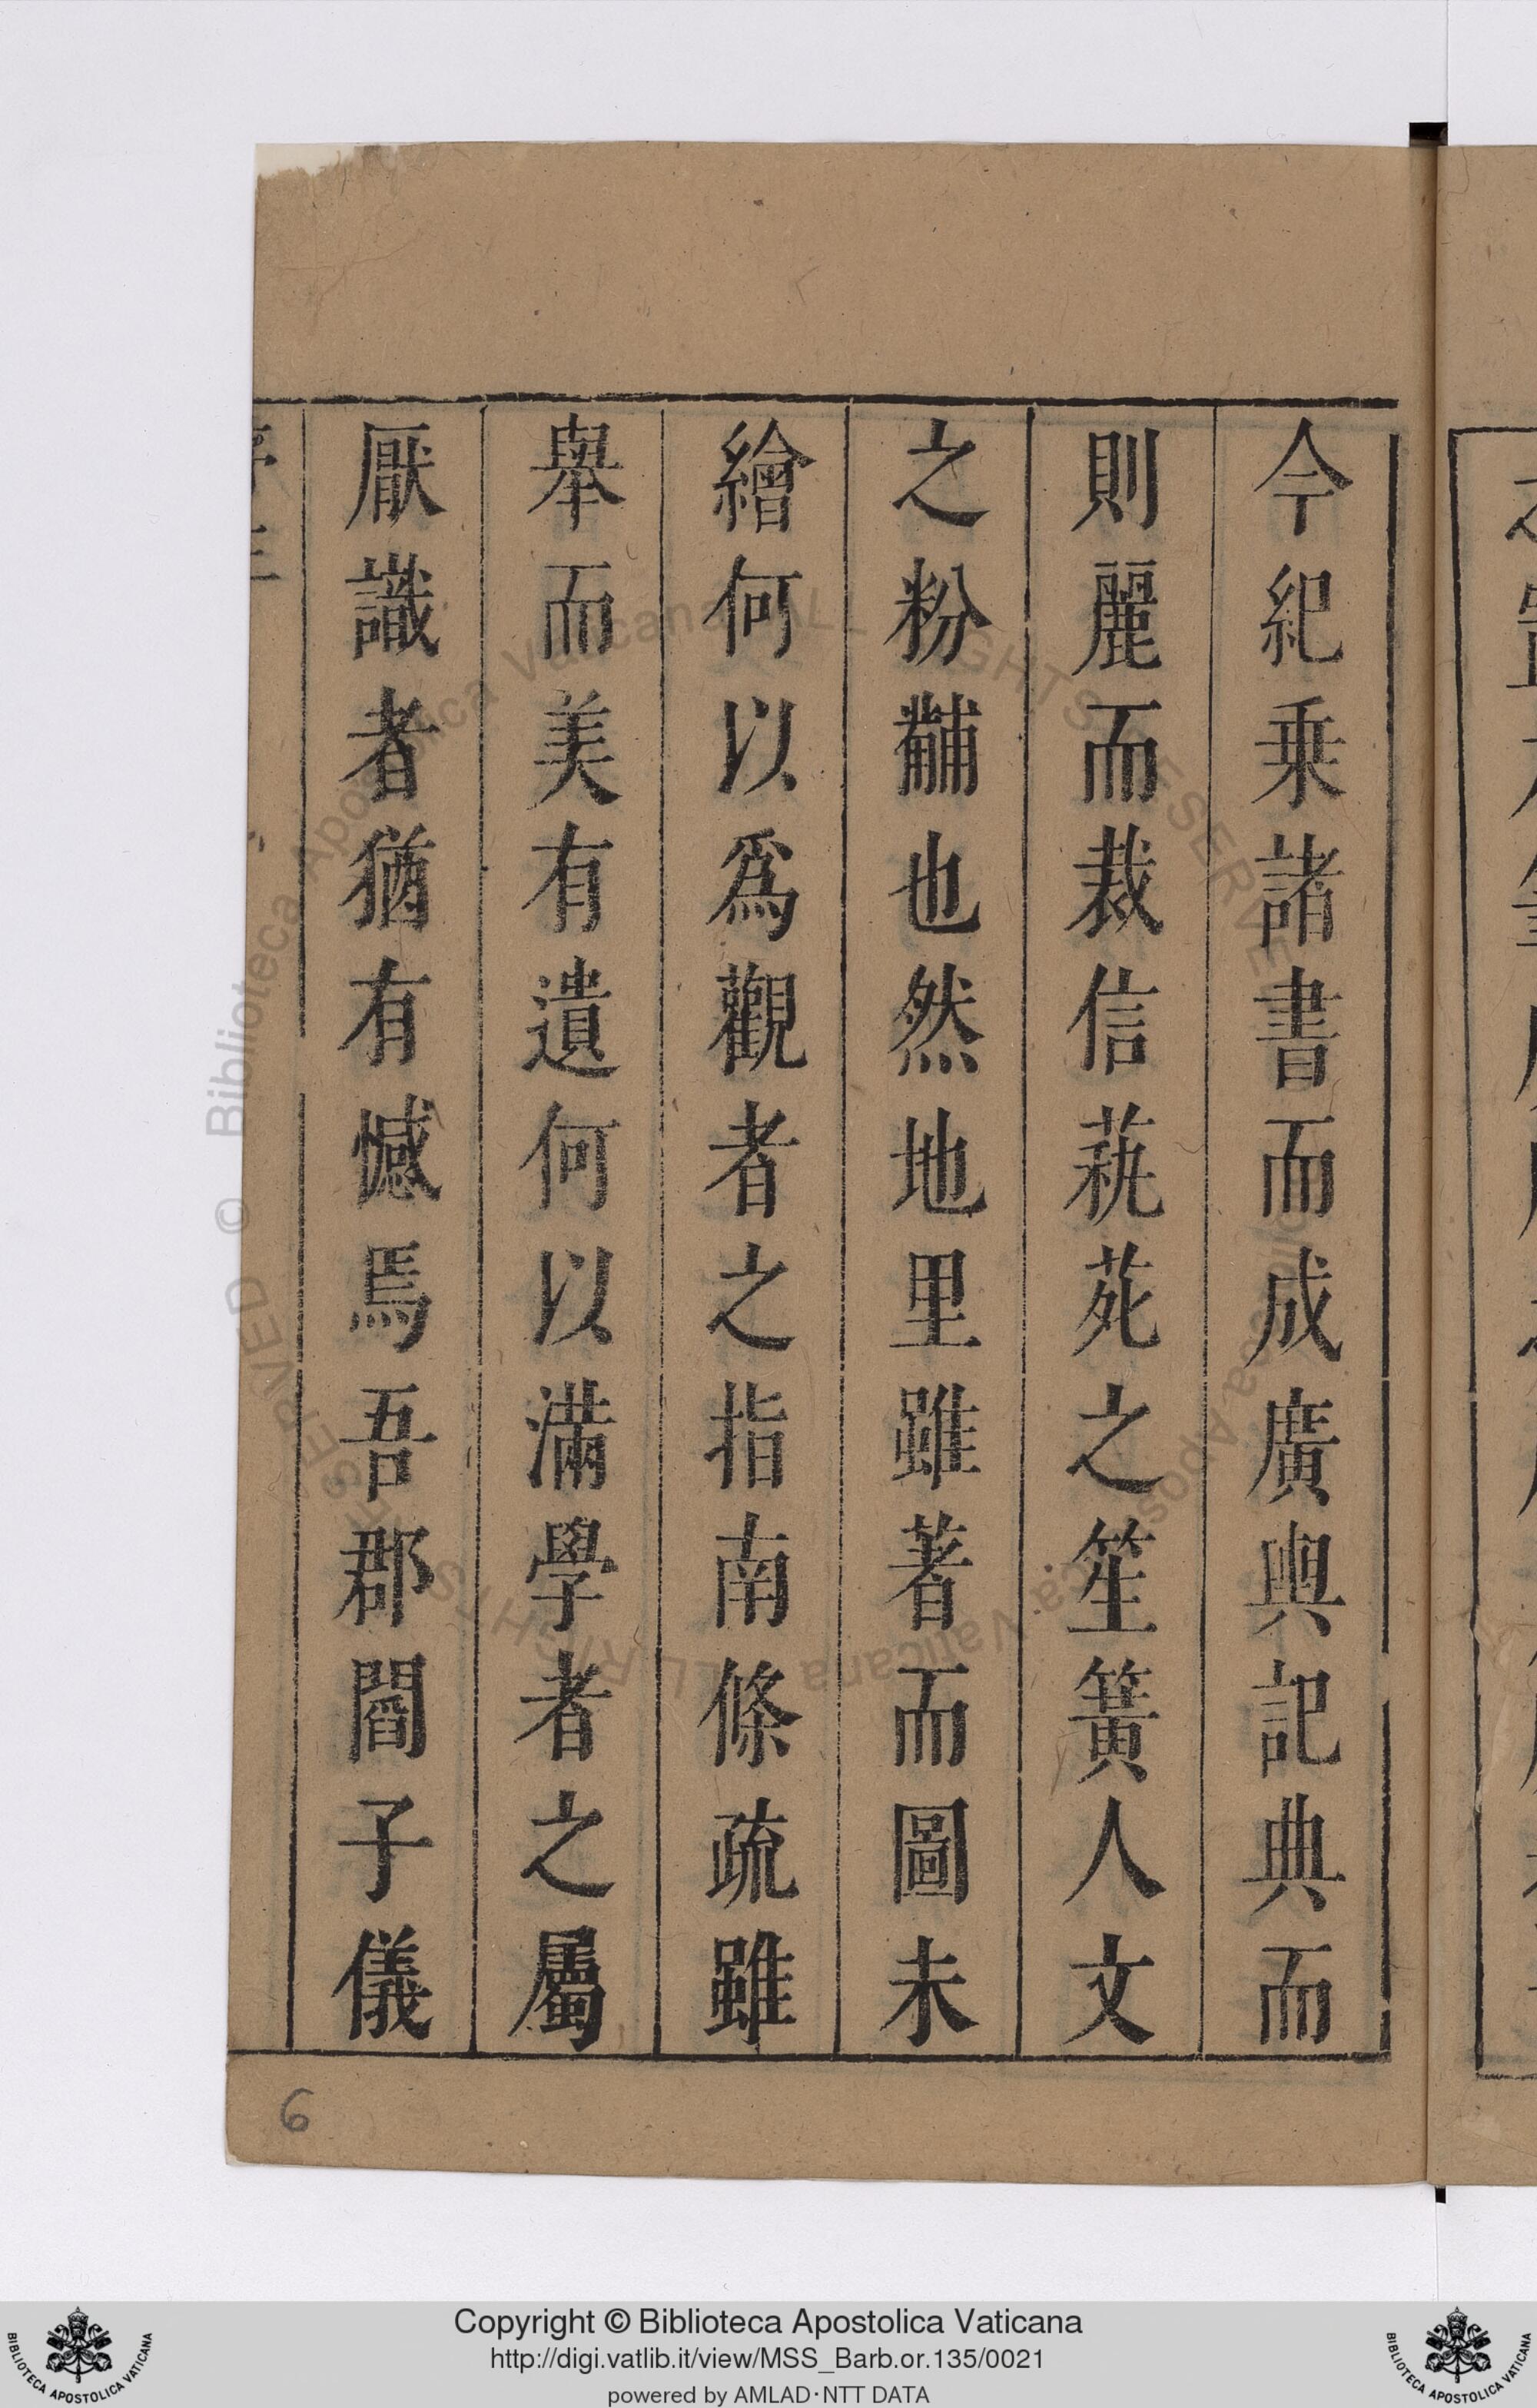 今紀乗諸書而成廣輿記典而
則麗而裁信蓻苑之笙簧人文
之粉黼也然地里雖著而圖未
繪何以爲觀者之指南條疏雖
舉而美有遺何以滿學者之屬
厭識者猶有憾焉吾郡閻子儀
序 三
6
Copyright © Biblioteca Apostolica Vaticana
http://digi.vatlib.it/view/MSS_Barb.or.135/0021
powered by AMLAD·NTT DATA
BIBLIOTECA APOSTOLICA VATICANA
BIBLIOTECA APOSTOLICA VATICANA